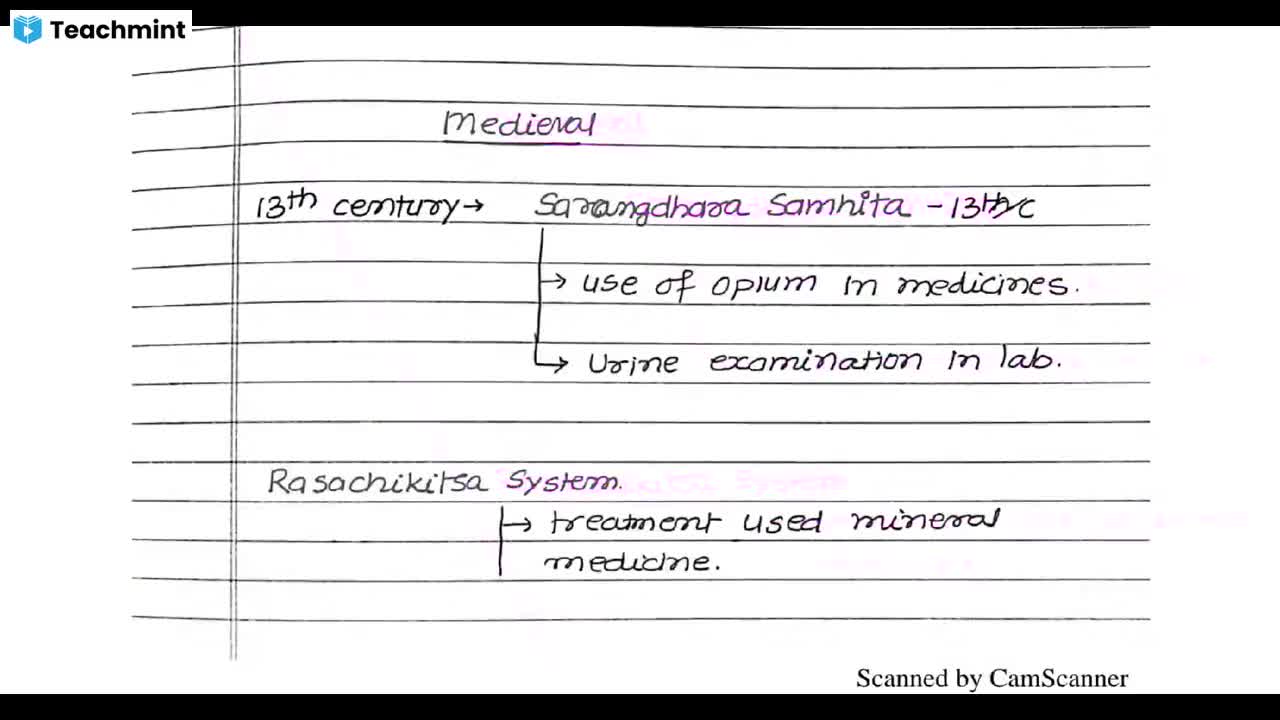 Teachmint
Medieval
13th century → Sarangdhara Samhita - 13th C
→ use of opium in medicines.
→ Urine examination in lab.
Rasachikitsa System.
→ treatment used mineral
medicine.
Scanned by CamScanner